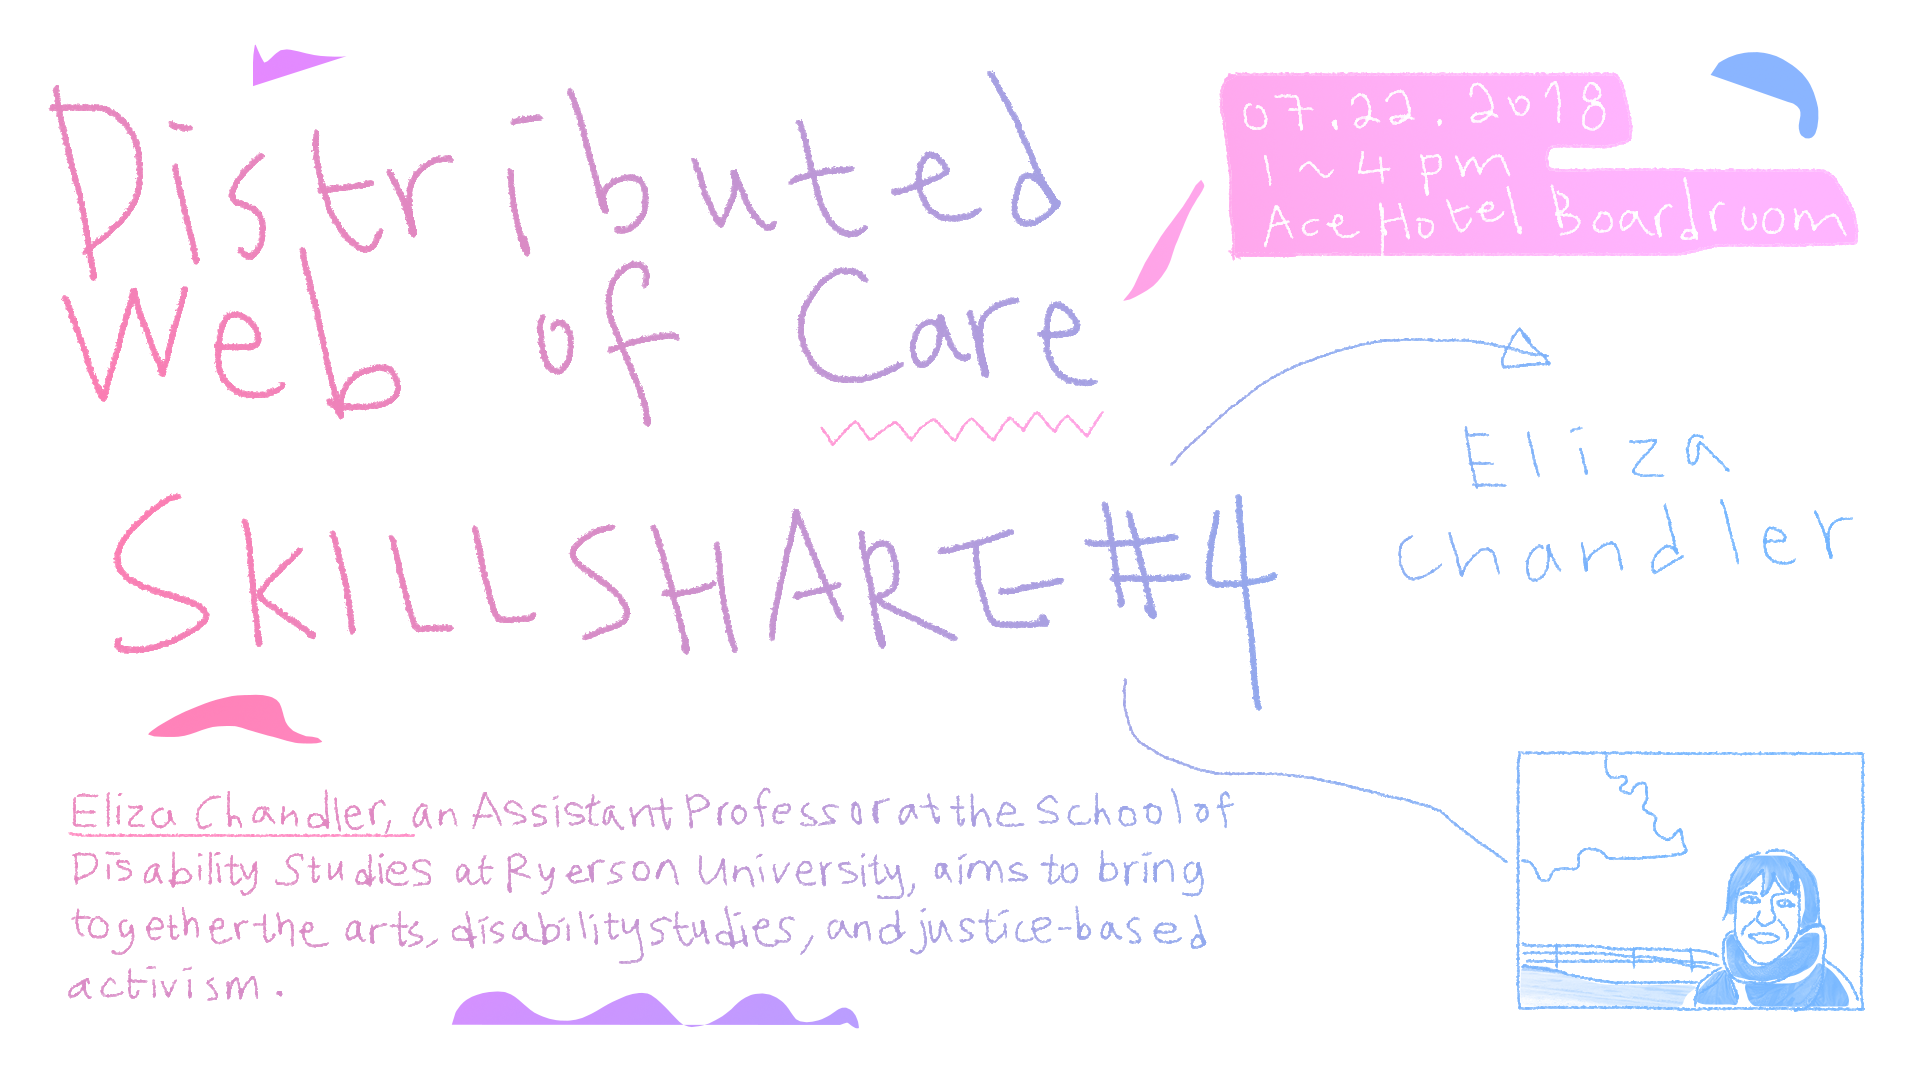 Distributed
Web of Care
SKILLSHARE #4
07.22.2018
1 ~ 4 pm
Ace Hotel Boardroom
Eliza
Chandler
Eliza Chandler, an Assistant Professor at the School of
Disability Studies at Ryerson University, aims to bring
together the arts, disability studies, and justice-based
activism.